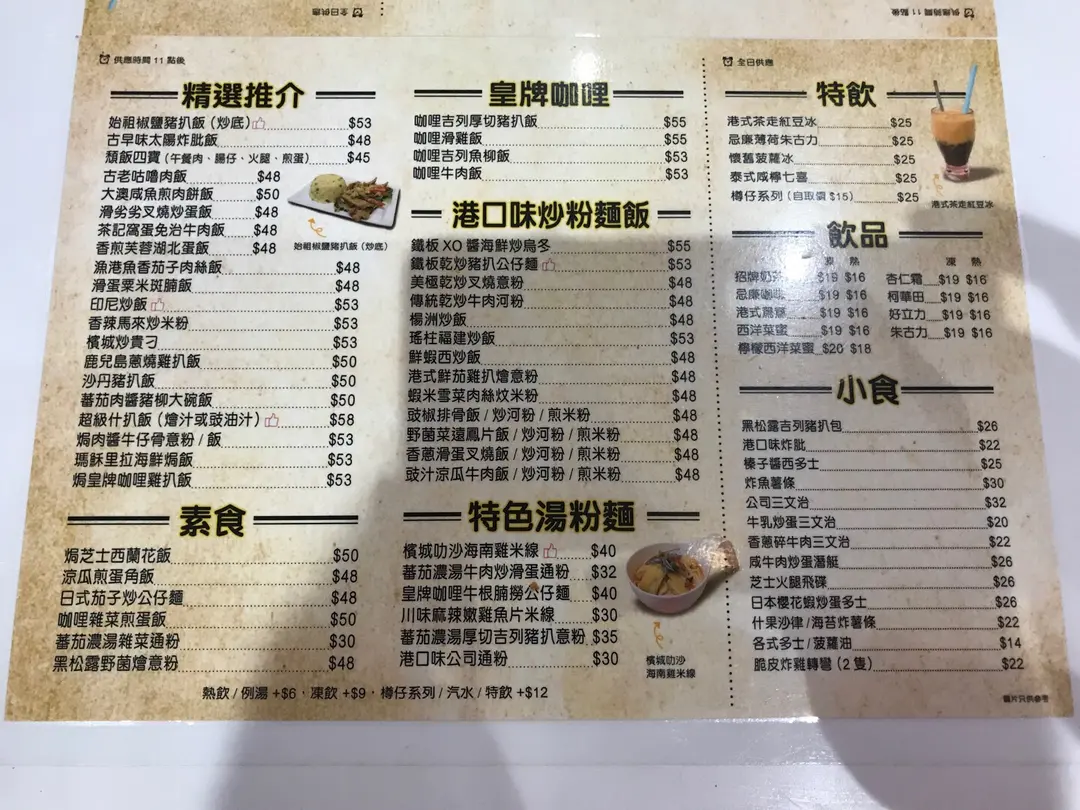 全日供應
供應時間 11 點後
供應時間 11 點後
精選推介
始祖椒鹽豬扒飯 (炒底) $53
古早味太陽炸肶飯 $48
頹飯四寶 (午餐肉、腸仔、火腿、煎蛋) $45
古老咕嚕肉飯 $48
大澳咸魚煎肉餅飯 $50
滑劣劣叉燒炒蛋飯 $48
茶記窩蛋免治牛肉飯 $48
香煎芙蓉湖北蛋飯 $48
漁港魚香茄子肉絲飯 $48
滑蛋粟米斑腩飯 $48
印尼炒飯 $53
香辣馬來炒米粉 $53
檳城炒貴刁 $53
鹿兒島蔥燒雞扒飯 $50
沙丹豬扒飯 $50
蕃茄肉醬豬柳大碗飯 $50
超級什扒飯 (燴汁或豉油汁) $58
焗肉醬牛仔骨意粉 / 飯 $53
瑪穌里拉海鮮焗飯 $53
焗皇牌咖喱雞扒飯 $53
始祖椒鹽豬扒飯 (炒底)
素食
焗芝士西蘭花飯 $50
涼瓜煎蛋角飯 $48
日式茄子炒公仔麵 $48
咖喱雜菜煎蛋飯 $50
蕃茄濃湯雜菜通粉 $30
黑松露野菌燴意粉 $48
皇牌咖喱
咖喱吉列厚切豬扒飯 $55
咖喱滑雞飯 $55
咖喱吉列魚柳飯 $53
咖喱牛肉飯 $53
港口味炒粉麵飯
鐵板 XO 醬海鮮炒烏冬 $55
鐵板乾炒豬扒公仔麵 $53
美極乾炒叉燒意粉 $48
傳統乾炒牛肉河粉 $48
楊洲炒飯 $48
瑤柱福建炒飯 $53
鮮蝦西炒飯 $48
港式鮮茄雞扒燴意粉 $48
蝦米雪菜肉絲炆米粉 $48
豉椒排骨飯 / 炒河粉 / 煎米粉 $48
野菌菜遠鳳片飯 / 炒河粉 / 煎米粉 $48
香蔥滑蛋叉燒飯 / 炒河粉 / 煎米粉 $48
豉汁涼瓜牛肉飯 / 炒河粉 / 煎米粉 $48
特色湯粉麵
檳城叻沙海南雞米線 $40
蕃茄濃湯牛肉炒滑蛋通粉 $32
皇牌咖喱牛根腩撈公仔麵 $40
川味麻辣嫩雞魚片米線 $30
蕃茄濃湯厚切吉列豬扒意粉 $35
港口味公司通粉 $30
檳城叻沙
海南雞米線
熱飲 / 例湯 +$6，凍飲 +$9，樽仔系列 / 汽水 / 特飲 +$12
全日供應
特飲
港式茶走紅豆冰 $25
忌廉薄荷朱古力 $25
懷舊菠蘿冰 $25
泰式咸檸七喜 $25
樽仔系列 (自取價 $15) $25
港式茶走紅豆冰
飲品
凍 熱 凍 熱
招牌奶茶 $19 $16 杏仁霜 $19 $16
忌廉咖啡 $19 $16 柯華田 $19 $16
港式鴛鴦 $19 $16 好立力 $19 $16
西洋菜蜜 $19 $16 朱古力 $19 $16
檸檬西洋菜蜜 $20 $18
小食
黑松露吉列豬扒包 $26
港口味炸肶 $22
榛子醬西多士 $25
炸魚薯條 $30
公司三文治 $32
牛乳炒蛋三文治 $20
香蔥碎牛肉三文治 $22
咸牛肉炒蛋潛艇 $26
芝士火腿飛碟 $26
日本櫻花蝦炒蛋多士 $26
什果沙律 / 海苔炸薯條 $22
各式多士 / 菠蘿油 $14
脆皮炸雞轉彎 (2 隻) $22
圖片只供參考